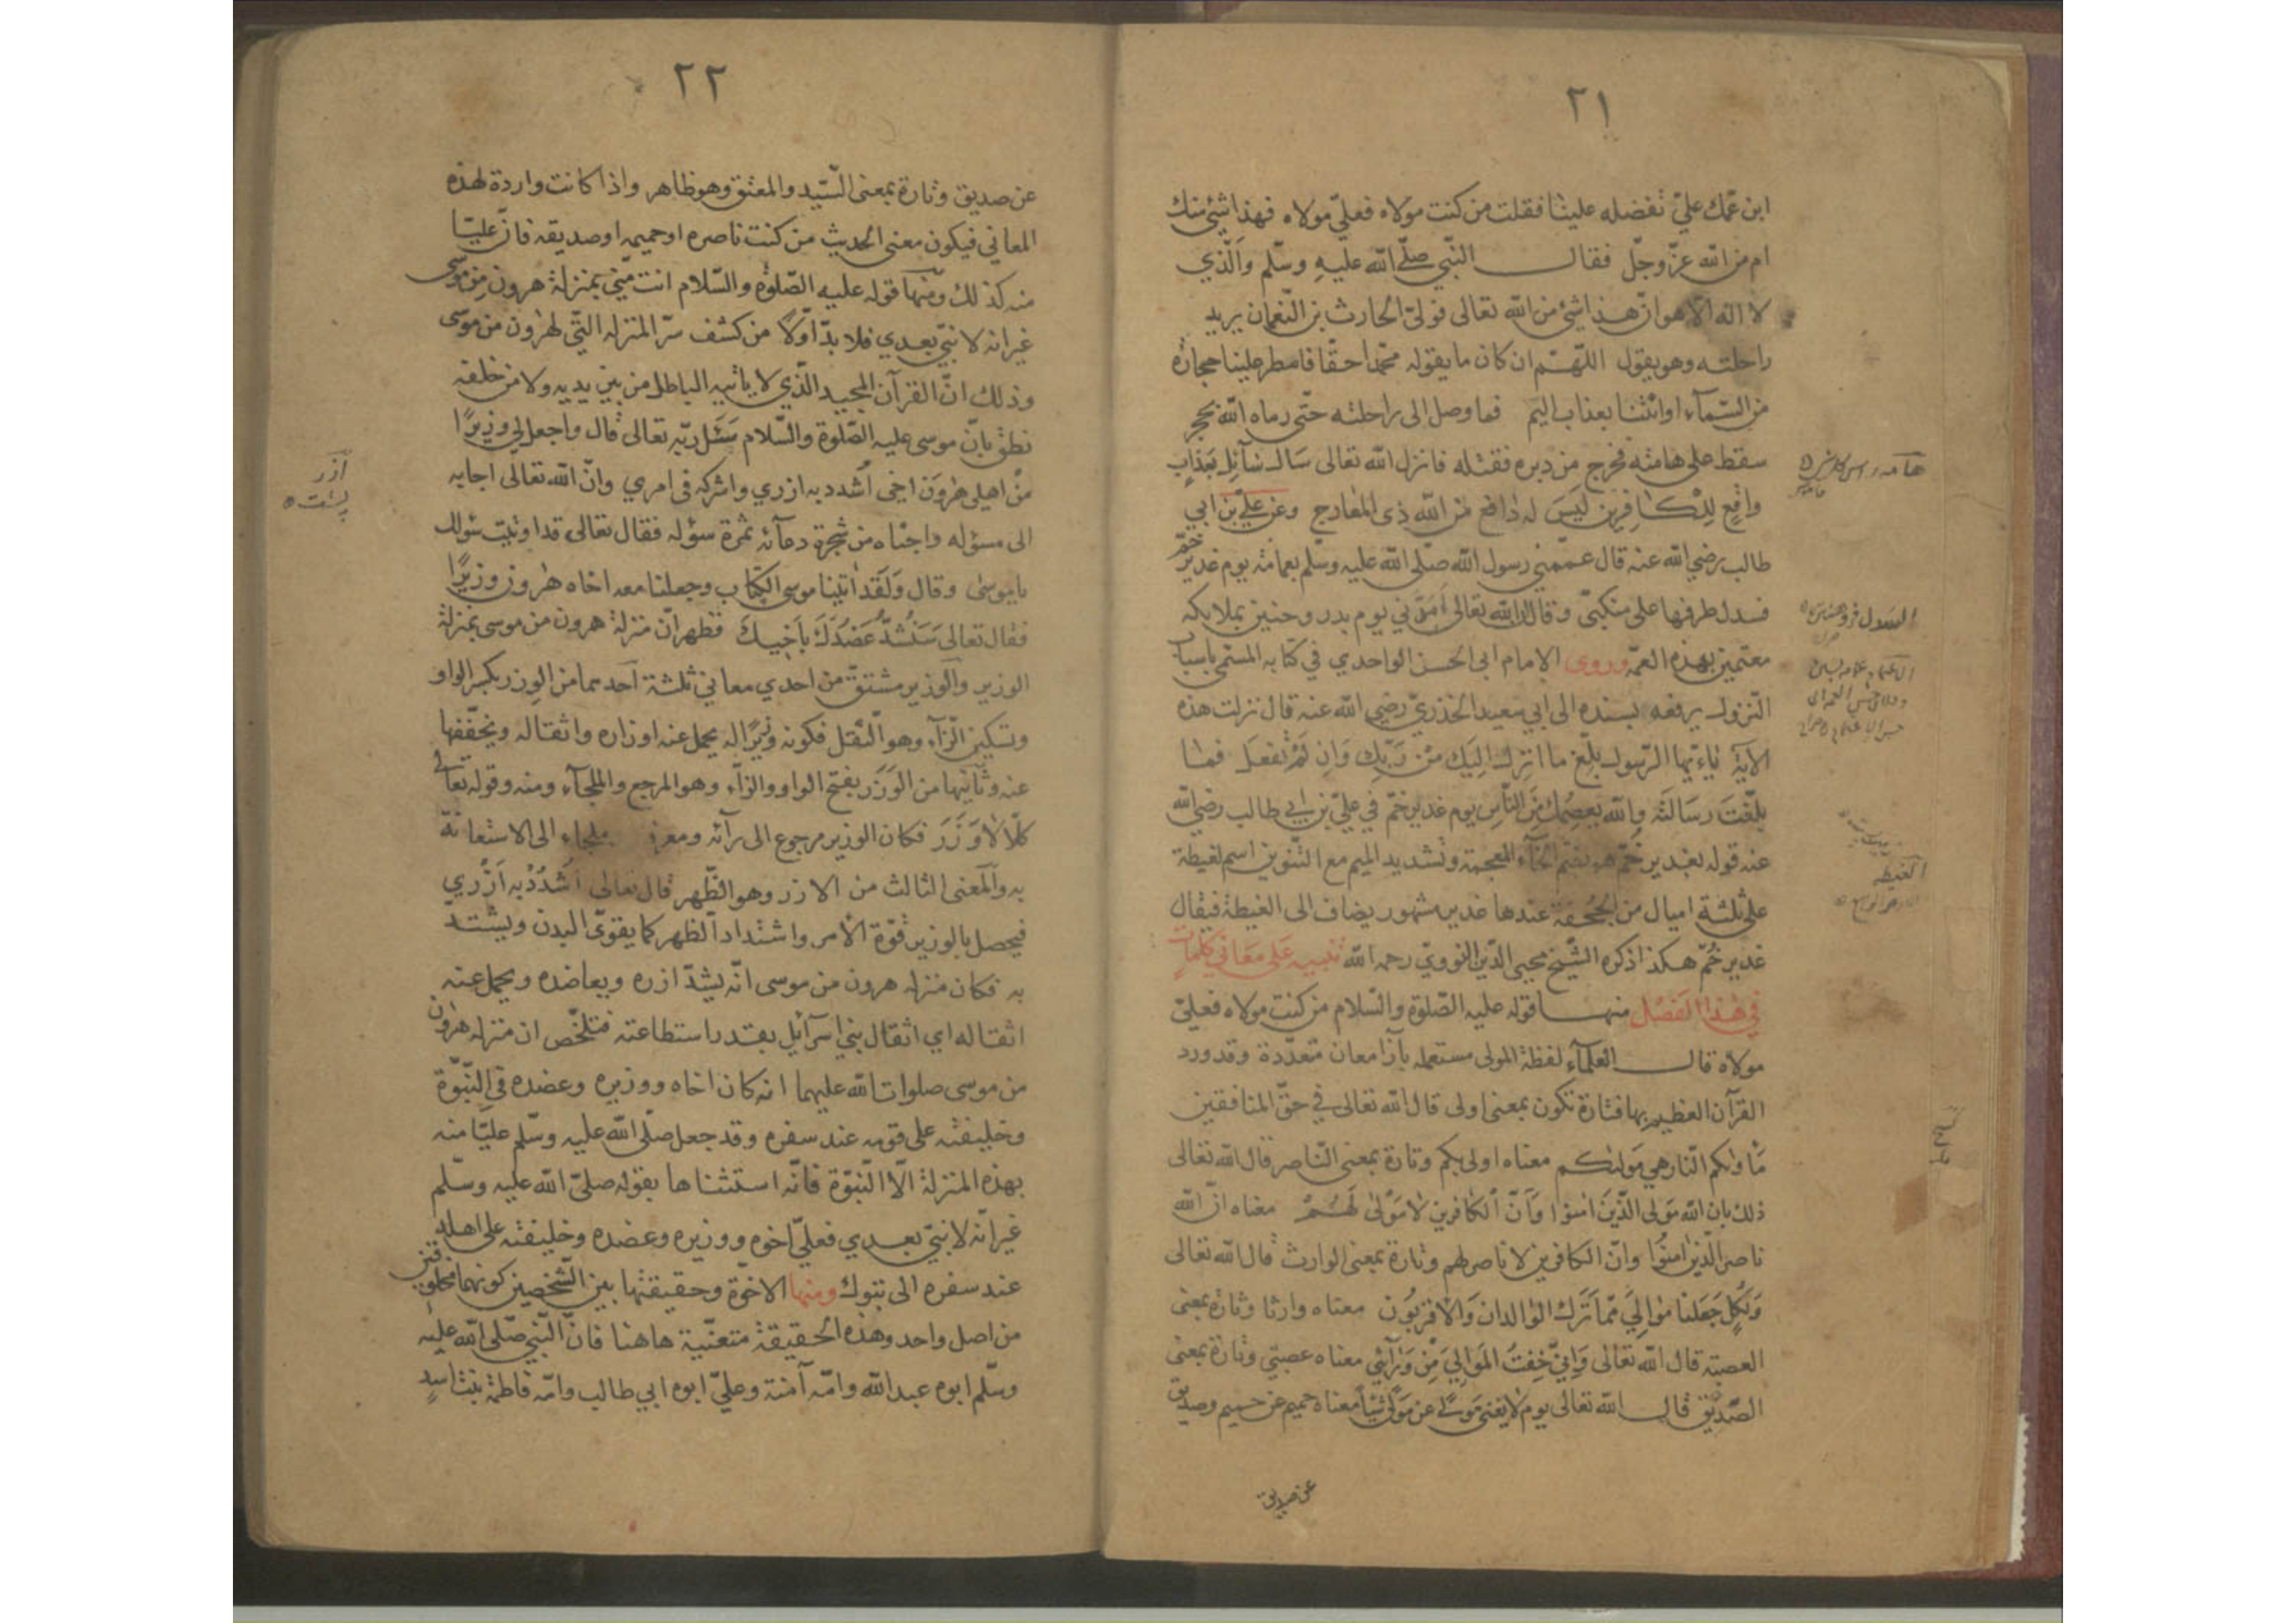 ٢١
ابن عمّك عليّ تفضله علينا فقلت من كنت مولاه فعليّ مولاه فهذا شئ منك
ام من الله عزّ وجلّ فقال النّبي صلّى الله عليه وسلّم والّذي
لا اله الّا هو انّ هذا شئ من الله تعالى فولّى الحارث بن النّعمان يريد
راحلته وهو يقول اللّهمّ ان كان ما يقوله محمّد احقّا فامطر علينا حجارة
من السّمآء او ائتنا بعذاب اليم فما وصل الى راحلته حتّى رماه الله بحجر
سقط على هامته فخرج من دبره فقتله فانزل الله تعالى سَال سَآئِل بعَذابٍ
واقِع لِلْكافِرين لَيسَ له دَافع مّن الله ذِى المَعارج وعن عليّ بن ابي
طالب رضي الله عنه قال عمّمني رسول الله صلّى الله عليه وسلّم بعمامة يوم غدير خمّ
فسدل طرفها على منكبّى وقال انّ الله تعالى اَمَدّني يوم بدر وحنين بملايكة
معتمّين بهذه العمّة وروى الامام ابى الحسن الواحدي في كتابه المسمّى باسباب
النّزول يرفعه بسنده الى ابي سعيد الخذريّ رضي الله عنه قال نزلت هذه
الآية يٰاءيّها الرّسول بلّغ ما انزل اليَك مّن رّبّك وَان لّمْ تفعَل فمٰا
بلّغتَ رسَالَته والله يعصِمك مِنَ النّاس يوم غدير خمّ في عليّ بن ابي طالب رضي الله
عنه قوله بغدير خمّ هو بضمّ الخآء المعجمة وتشديد الميم مع التّنوين اسم لغيطة
على ثلثة اميال من الجُحفة عندها غدير مشهور يضاف الى الغيطة فيقال
غدير خُمّ هكذا ذكره الشّيخ محيى الدّين النّوويّ رحمه الله تنبيه عَلى مَعَاني كلماتٍ
في هذا الفَصْل منها قوله عليه الصّلوة والسّلام من كنت مولاه فعليّ
مولاه قال العلمآء لفظة المولى مستعمله بآزا معان متعدّدة وقد ورد
القرآن العظيم بها فتارة تكون بمعنى اولى قال الله تعالى في حقّ المنافقين
مَاوٰىكم النّار هي مَولٰىكم معناه اولى بكم وتارة بمعنى النّاصر قال الله تعالى
ذلك بان الله مَولى الّذينَ اٰمنوْا وَاَنّ الكٰافرين لا مَوْلىٰ لَهُمْ معناه انّ الله
ناصر الّذين اٰمنُوا وانّ الكافرين لا ناصر لهم وتارة بمعنى الوارث قال الله تعالى
وَلكُلٍّ جَعَلنا موٰالِيَ مّمّا تَرَك الوٰالدان وَالاقربُون معناه وارثا وتارة بمعنى
العصبة قال الله تعالى وَاِنّي خِفتُ المَوالِيَ مِنْ وَرٰآئي معناه عصبتي وتارة بمعنى
الصّديق قال الله تعالى يوم لا يغنى مَوْلًى عن مَوْلًى شيْأ معناه حميم عن حميم وصديق
عن صديق
هامه راس
السدل
الغيطه
٢٢
عن صديق وتارة بمعنى السّيّد والمعتق وهو ظاهر واذا كانت واردة لهذه
المعاني فيكون معنى الحديث من كنت ناصره او حميمه او صديقه فانّ عليّا
منه كذلك ومنها قوله عليه الصّلوة والسّلام انت منّي بمنزلة هرون من موسى
غير انه لا نبيّ بعدي فلا بدّ اوّلًا من كشف سرّ المنزله الّتي لهرون من موسى
وذلك انّ القرآن المجيد الّذي لا ياتيه الباطل من بين يديه ولا من خلفه
نطق بانّ موسى عليه الصّلوة والسّلام سَئَل ربّه تعالى قال واجعل لي وزيرًا
مّنْ اهلي هٰرونَ اخى اُشدد به ازري واشركه في امري وانّ الله تعالى اجابه
الى مسؤله واجناه من شجرة دعآئه ثمرة سؤله فقال تعالى قد اوتيت سُولك
ياموسىٰ وقال وَلَقَد اٰتينا موسى الكِتاب وجعلنا معه اخاه هٰرون وزيرًا
فقال تعالى سَنَشُدّ عَضُدَكَ بأخيكَ فظهر انّ منزلة هرون من موسى بمنزلة
الوزير والوزير مشتقّ من احدي معاني ثلثة احدهما من الوِزر بكسر الواو
وتسكين الزّآء وهو الثّقل فكونه وزيرًا له يحمل عنه اوزاره واثقاله ويخفّفها
عنه وثانيها من الوَزَر بفتح الواو والزّآء وهو المرجع والملجآء ومنه وقوله تعالى
كلّا لا وَزَرَ فكان الوزير مرجوع الى رآئه ومعرفـ ملجاء الى الاستعانة
به والمعنى الثالث من الازر وهو الظّهر قال تعالى اَشدُدْ به اَزْري
فيحصل بالوزير قوّة الأمر واشتداد الظهر كما يقوّى البدن ويشتدّ
به فكان منزلة هرون من موسى انّه يشدّ ازره ويعاضده ويحمل عنه
اثقاله اي اثقال بني اسرآئيل بقدر استطاعته فتلخّص ان منزله هٰرون
من موسى صلوات الله عليهما انه كان اخاه ووزيره وعضده في النّبوّة
وخليفته على قومه عند سفره وقد جعل صلّى الله عليه وسلّم عليّا منه
بهذه المنزلة الّا النّبوّة فانّه استثناها بقوله صلىّ الله عليه وسلّم
غير انّه لا نبيّ بعدي فعليّ اخوه ووزيره وعضده وخليفته على اهله
عند سفره الى تبوك ومنها الاخوّة وحقيقتها بين الشّخصين كونهما مخلوقين
من اصل واحد وهذه الحقيقة متعنّية هاهنا فانّ النّبي صلّى الله عليه
وسلّم ابوه عبد الله وامّه آمنة وعليّ ابوه ابي طالب وامّه فاطمة بنت اسدٍ
آزر
پشت